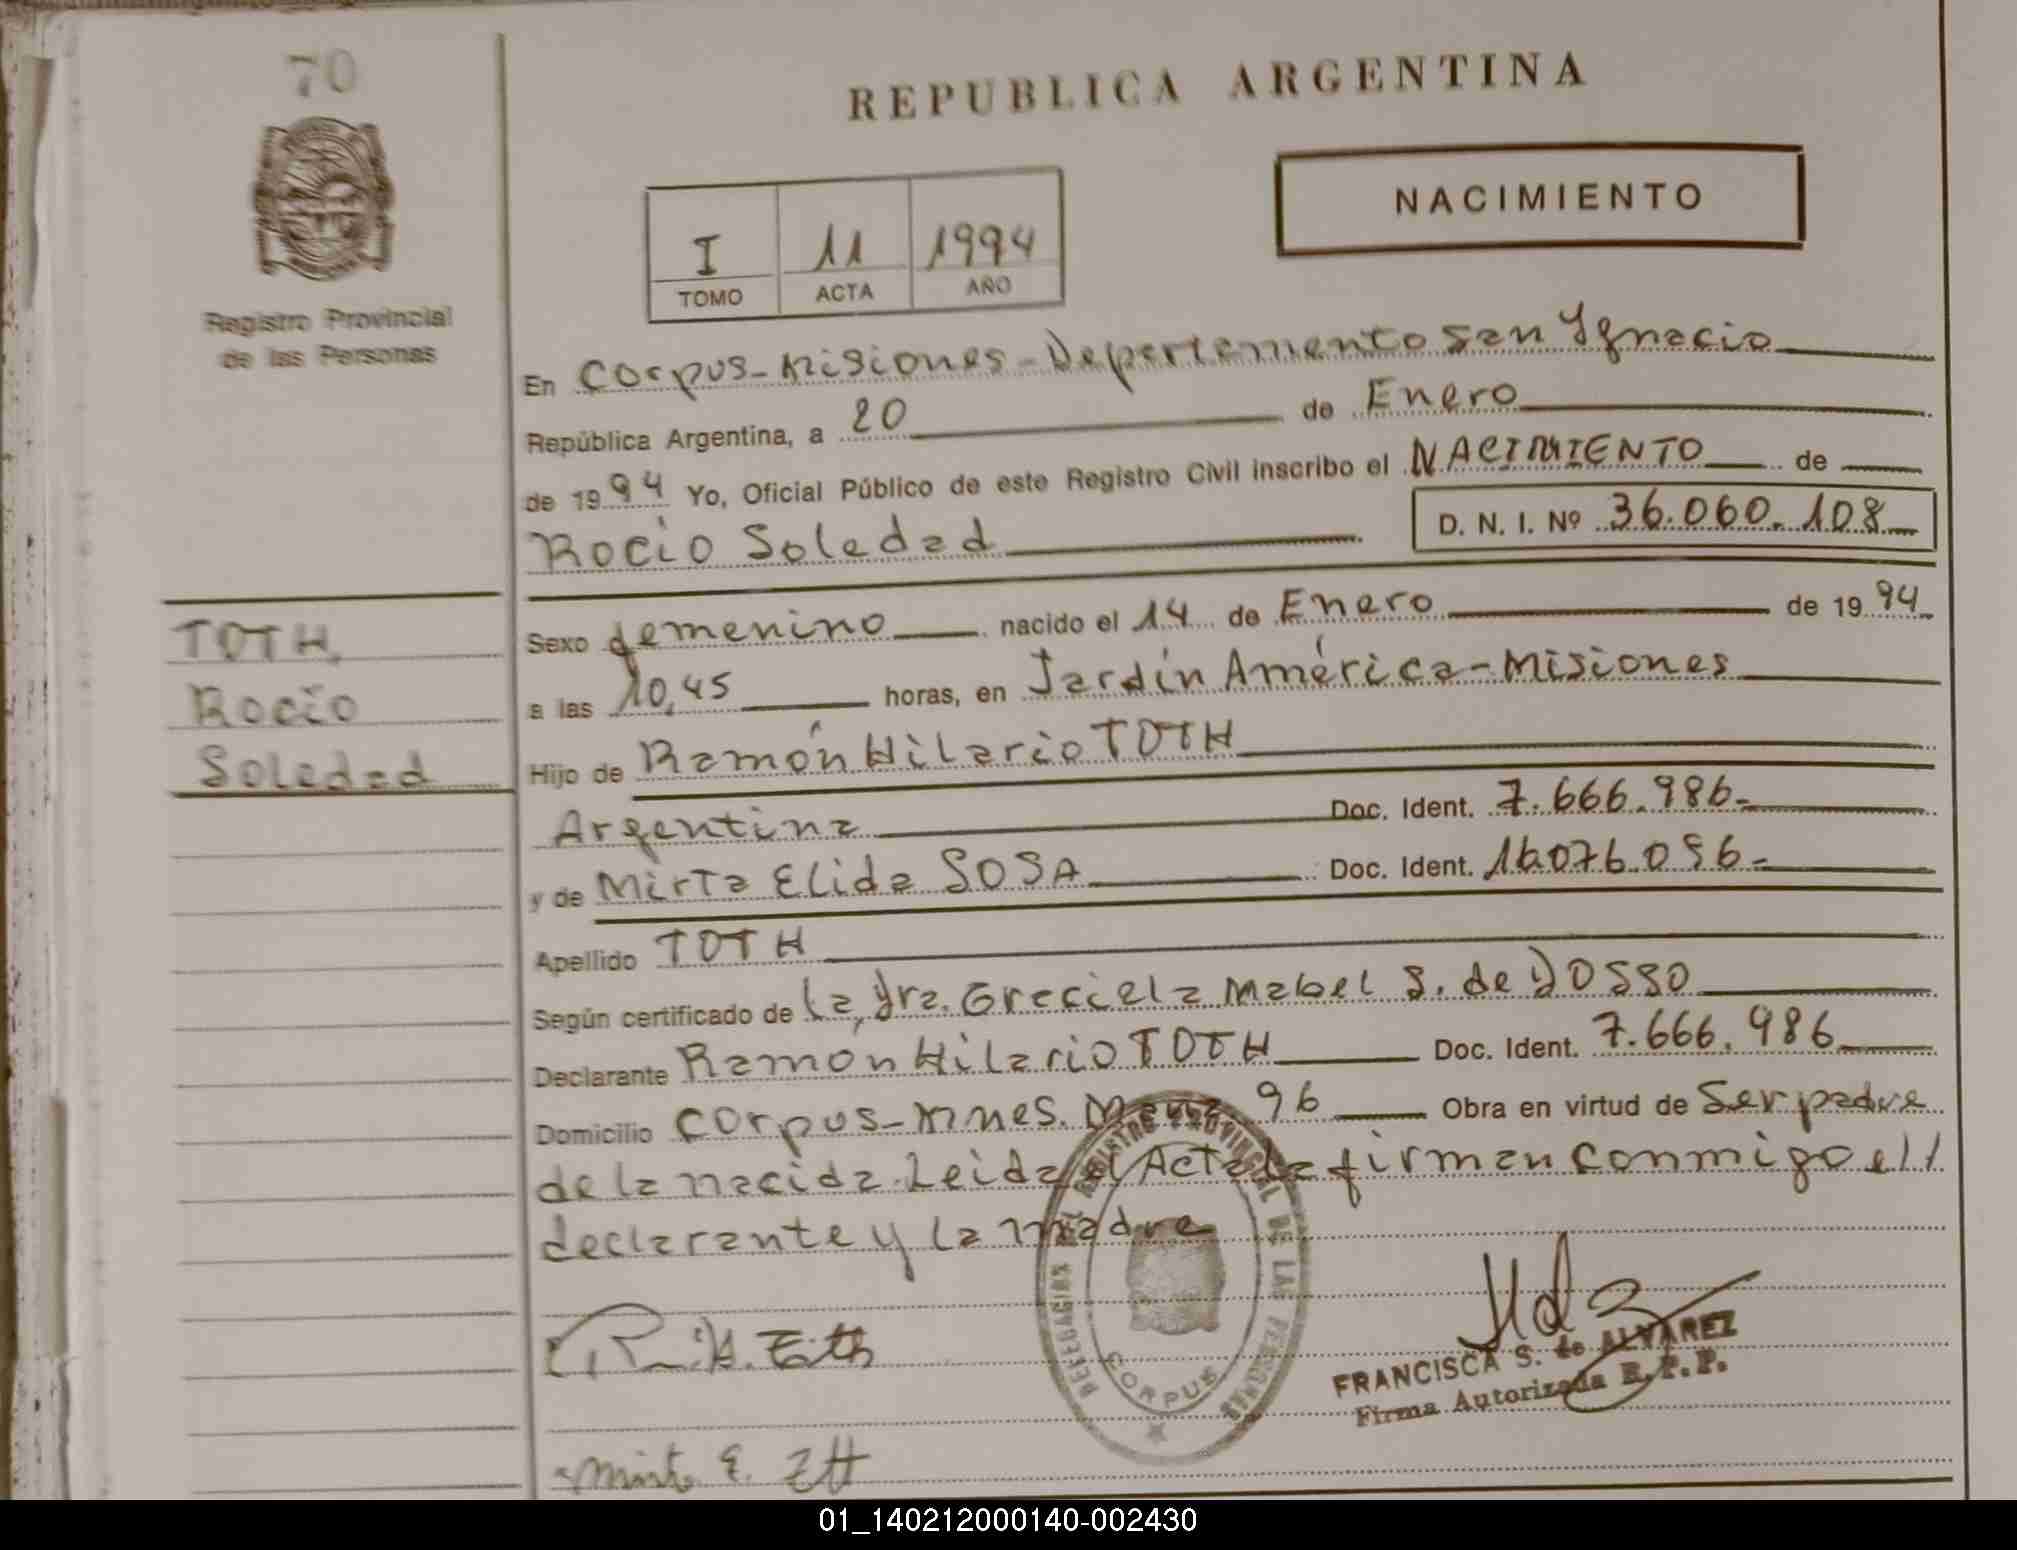 70
REPUBLICA ARGENTINA
NACIMIENTO
I 11 1994
TOMO ACTA AÑO
Registro Provincial
de las Personas
En Corpus-Misiones-Departamento San Ignacio
República Argentina, a 20 de Enero
de 1994 Yo, Oficial Público de este Registro Civil inscribo el NACIMIENTO de
Rocío Soledad D. N. I. Nº 36.060.108
TOTH,
Rocío
Soledad
Sexo femenino nacido el 14 de Enero de 1994
a las 10,45 horas, en Jardín América-Misiones
Hijo de Ramón Hilario TOTH
Argentina Doc. Ident. 7.666.986-
y de Mirta Elida SOSA Doc. Ident. 16.076.056-
Apellido TOTH
Según certificado de la Dra. Graciela Mabel S. de DOSSO
Declarante Ramón Hilario TOTH Doc. Ident. 7.666.986
Domicilio Corpus-Mnes. 96 Obra en virtud de Ser padre
de la nacida. Leida el Acta la firman conmigo el
declarante y la madre
DELEGACION REGISTRO PROVINCIAL DE LAS PERSONAS
CORPUS
FRANCISCA S. de ALVAREZ
Firma Autorizada R.P.P.
01_140212000140-002430